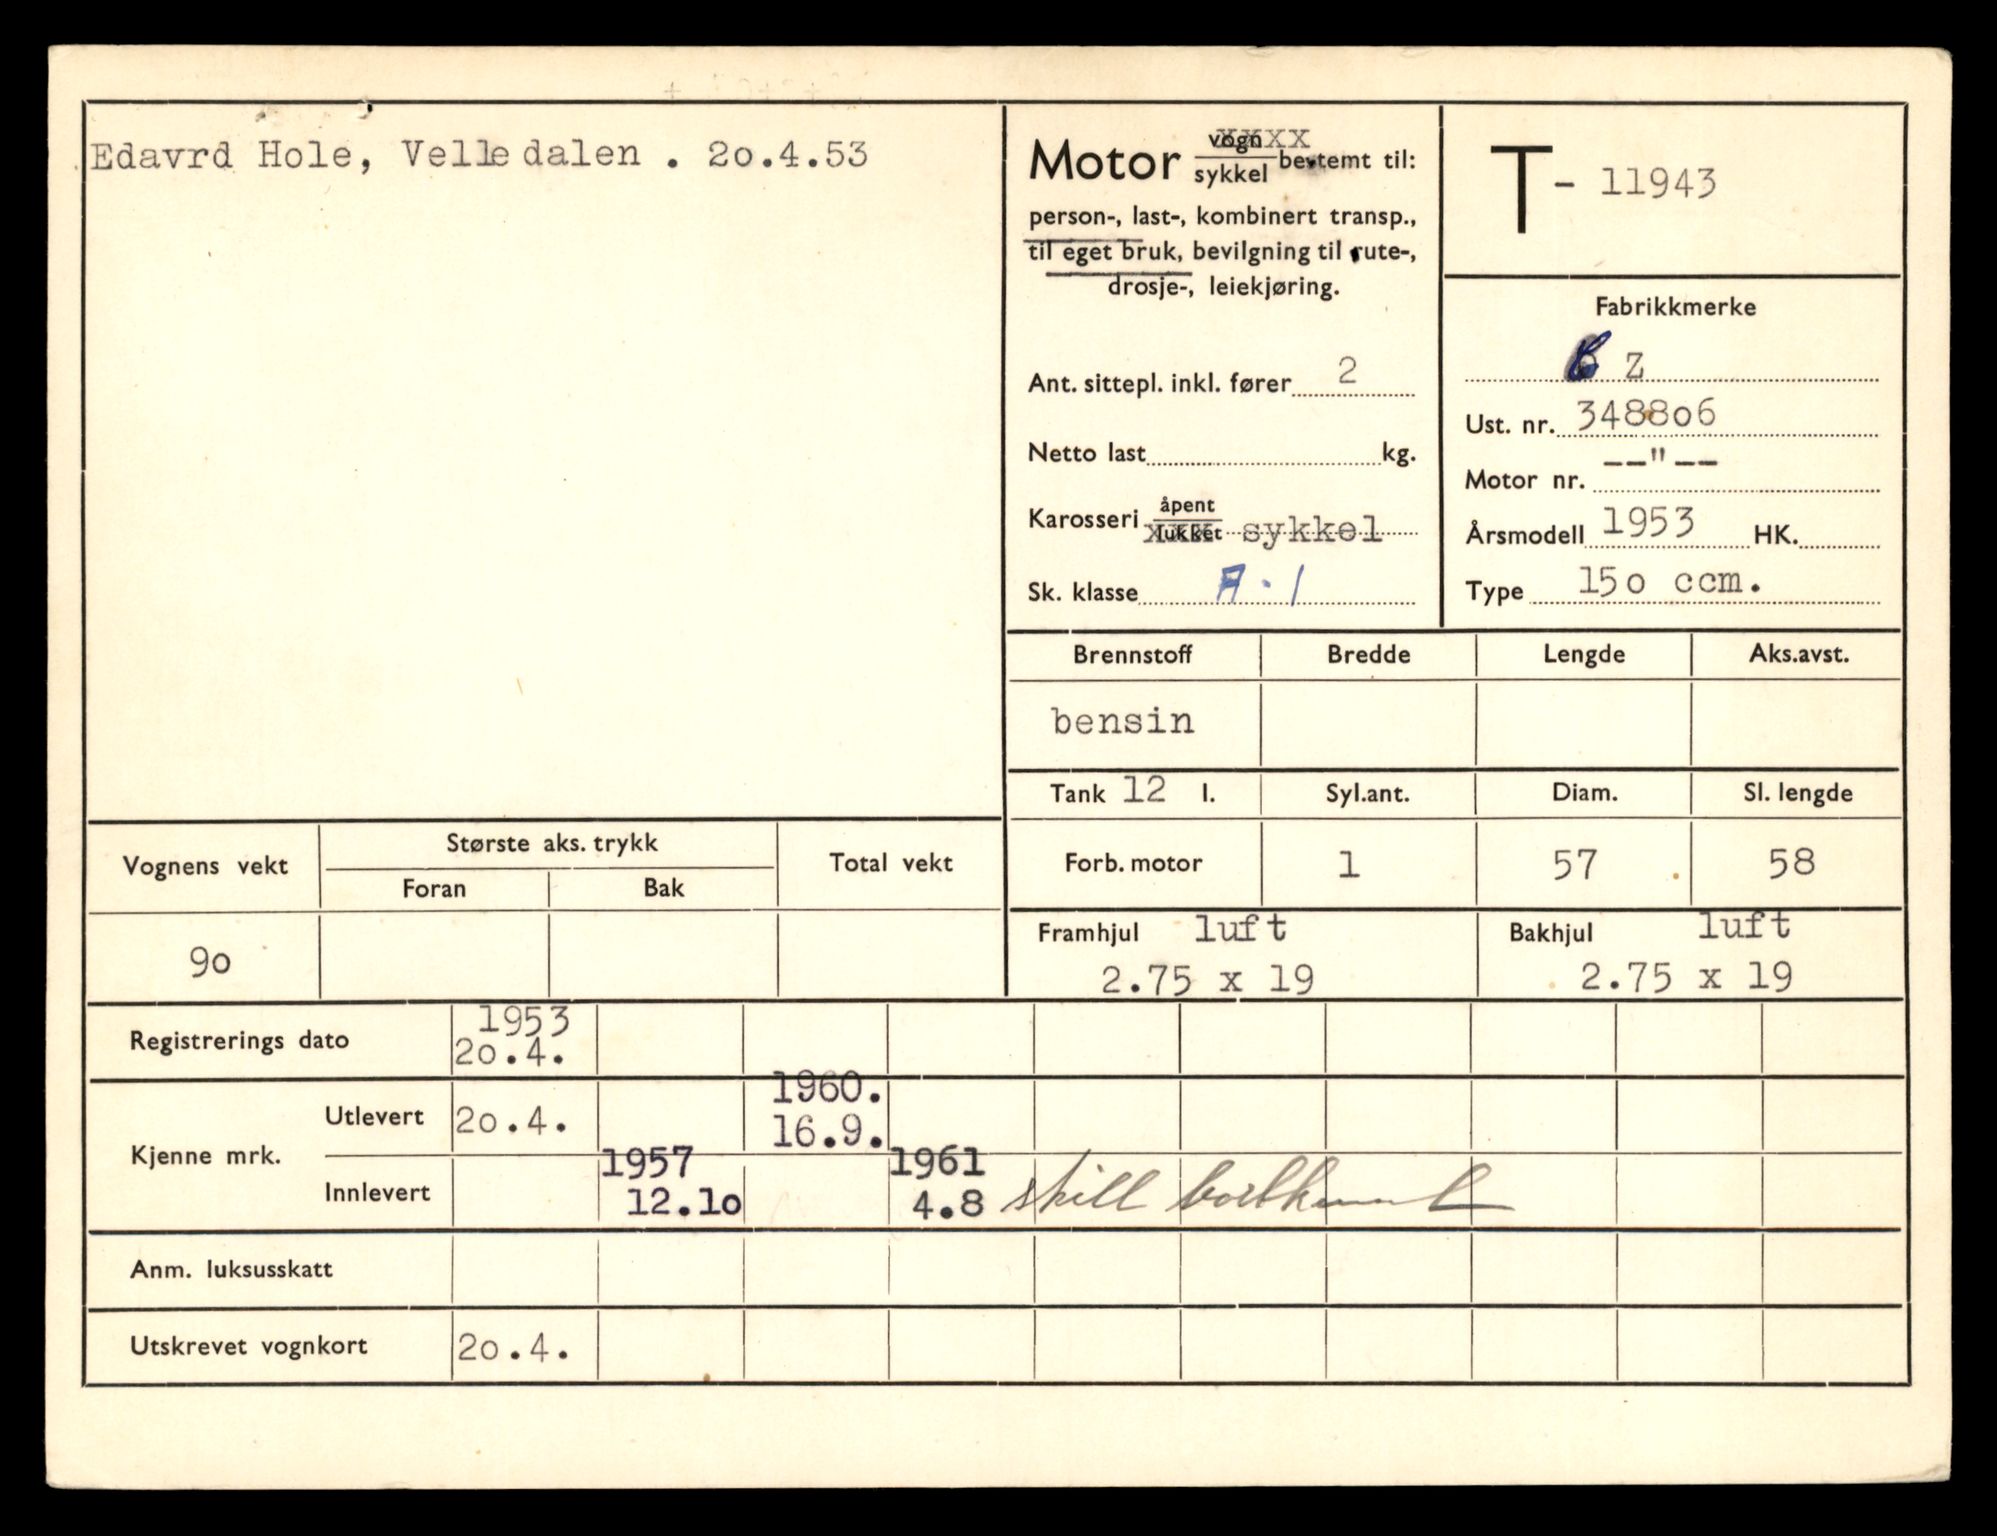 Edavrd Hole, Velledalen . 20.4.53
Motor vogn xxxx
sykkel bestemt til:
person-, last-, kombinert transp.,
til eget bruk, bevilgning til rute-,
drosje-, leiekjøring.
Ant. sittepl. inkl. fører 2
Netto last kg.
Karosseri åpent
lukket xxx sykkel
Sk. klasse A-1
T - 11943
Fabrikkmerke
Z
Ust. nr. 348806
Motor nr. --"--
Årsmodell 1953 HK.
Type 150 ccm.
Brennstoff Bredde Lengde Aks.avst.
bensin
Tank 12 l. Syl.ant. Diam. Sl. lengde
Forb. motor 1 57 58
Framhjul luft Bakhjul luft
2.75 x 19 2.75 x 19
Vognens vekt Største aks. trykk Total vekt
Foran Bak
90
Registrerings dato 1953
20.4.
Kjenne mrk. Utlevert 20.4. 1960.
16.9.
Innlevert 1957 1961
12.10 4.8 skilt
Anm. luksusskatt
Utskrevet vognkort 20.4.